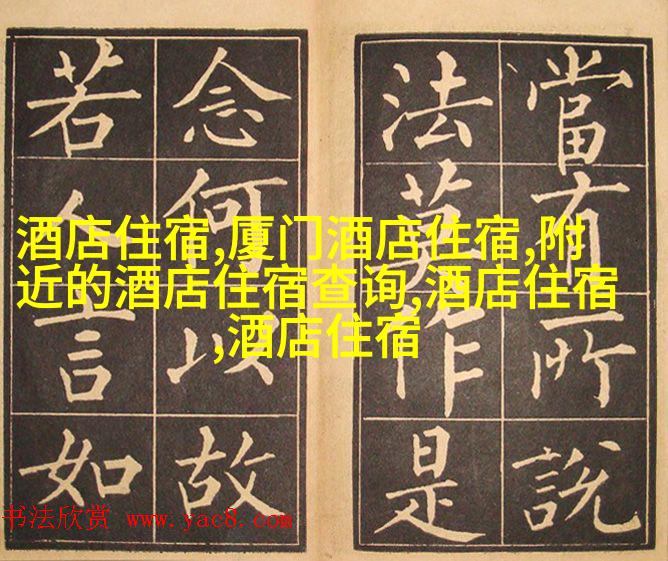 當有所說
法莫作是
念何以故
若人言如
酒店住宿,厦门酒店住宿,附
近的酒店住宿查询,酒店住宿
,酒店住宿
书法欣赏 www.yac8.com